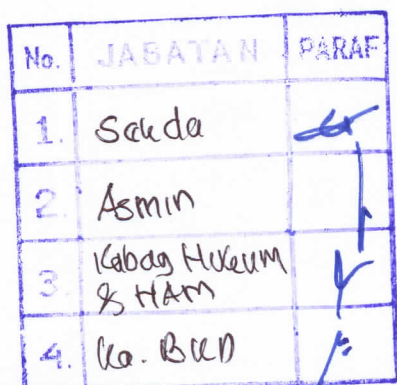 No. JABATAN PARAF
1. Sekda
2. Asmin
3. Kabag Hukum
& HAM
4. Ka. BKD